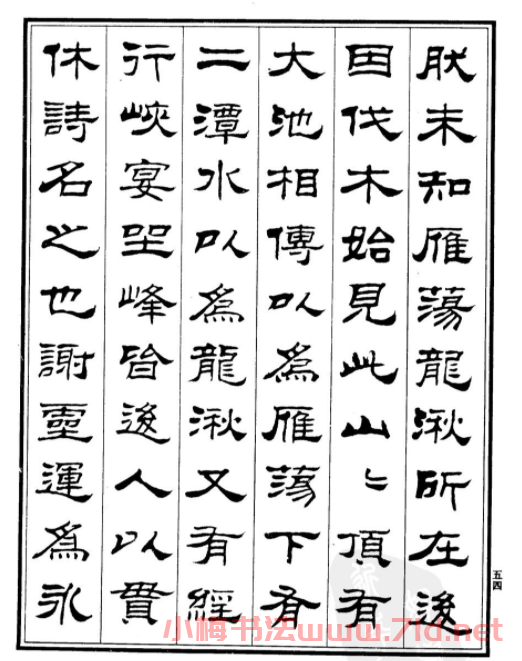 肰未知雁蕩龍湫所在後
因伐木始見此山〻頂有
大池相傳以爲雁蕩下有
二潭水以爲龍湫又有經
行峽宴坐峰皆後人以貫
休詩名之也謝靈運爲永
五四
小梅书法www.7ld.net